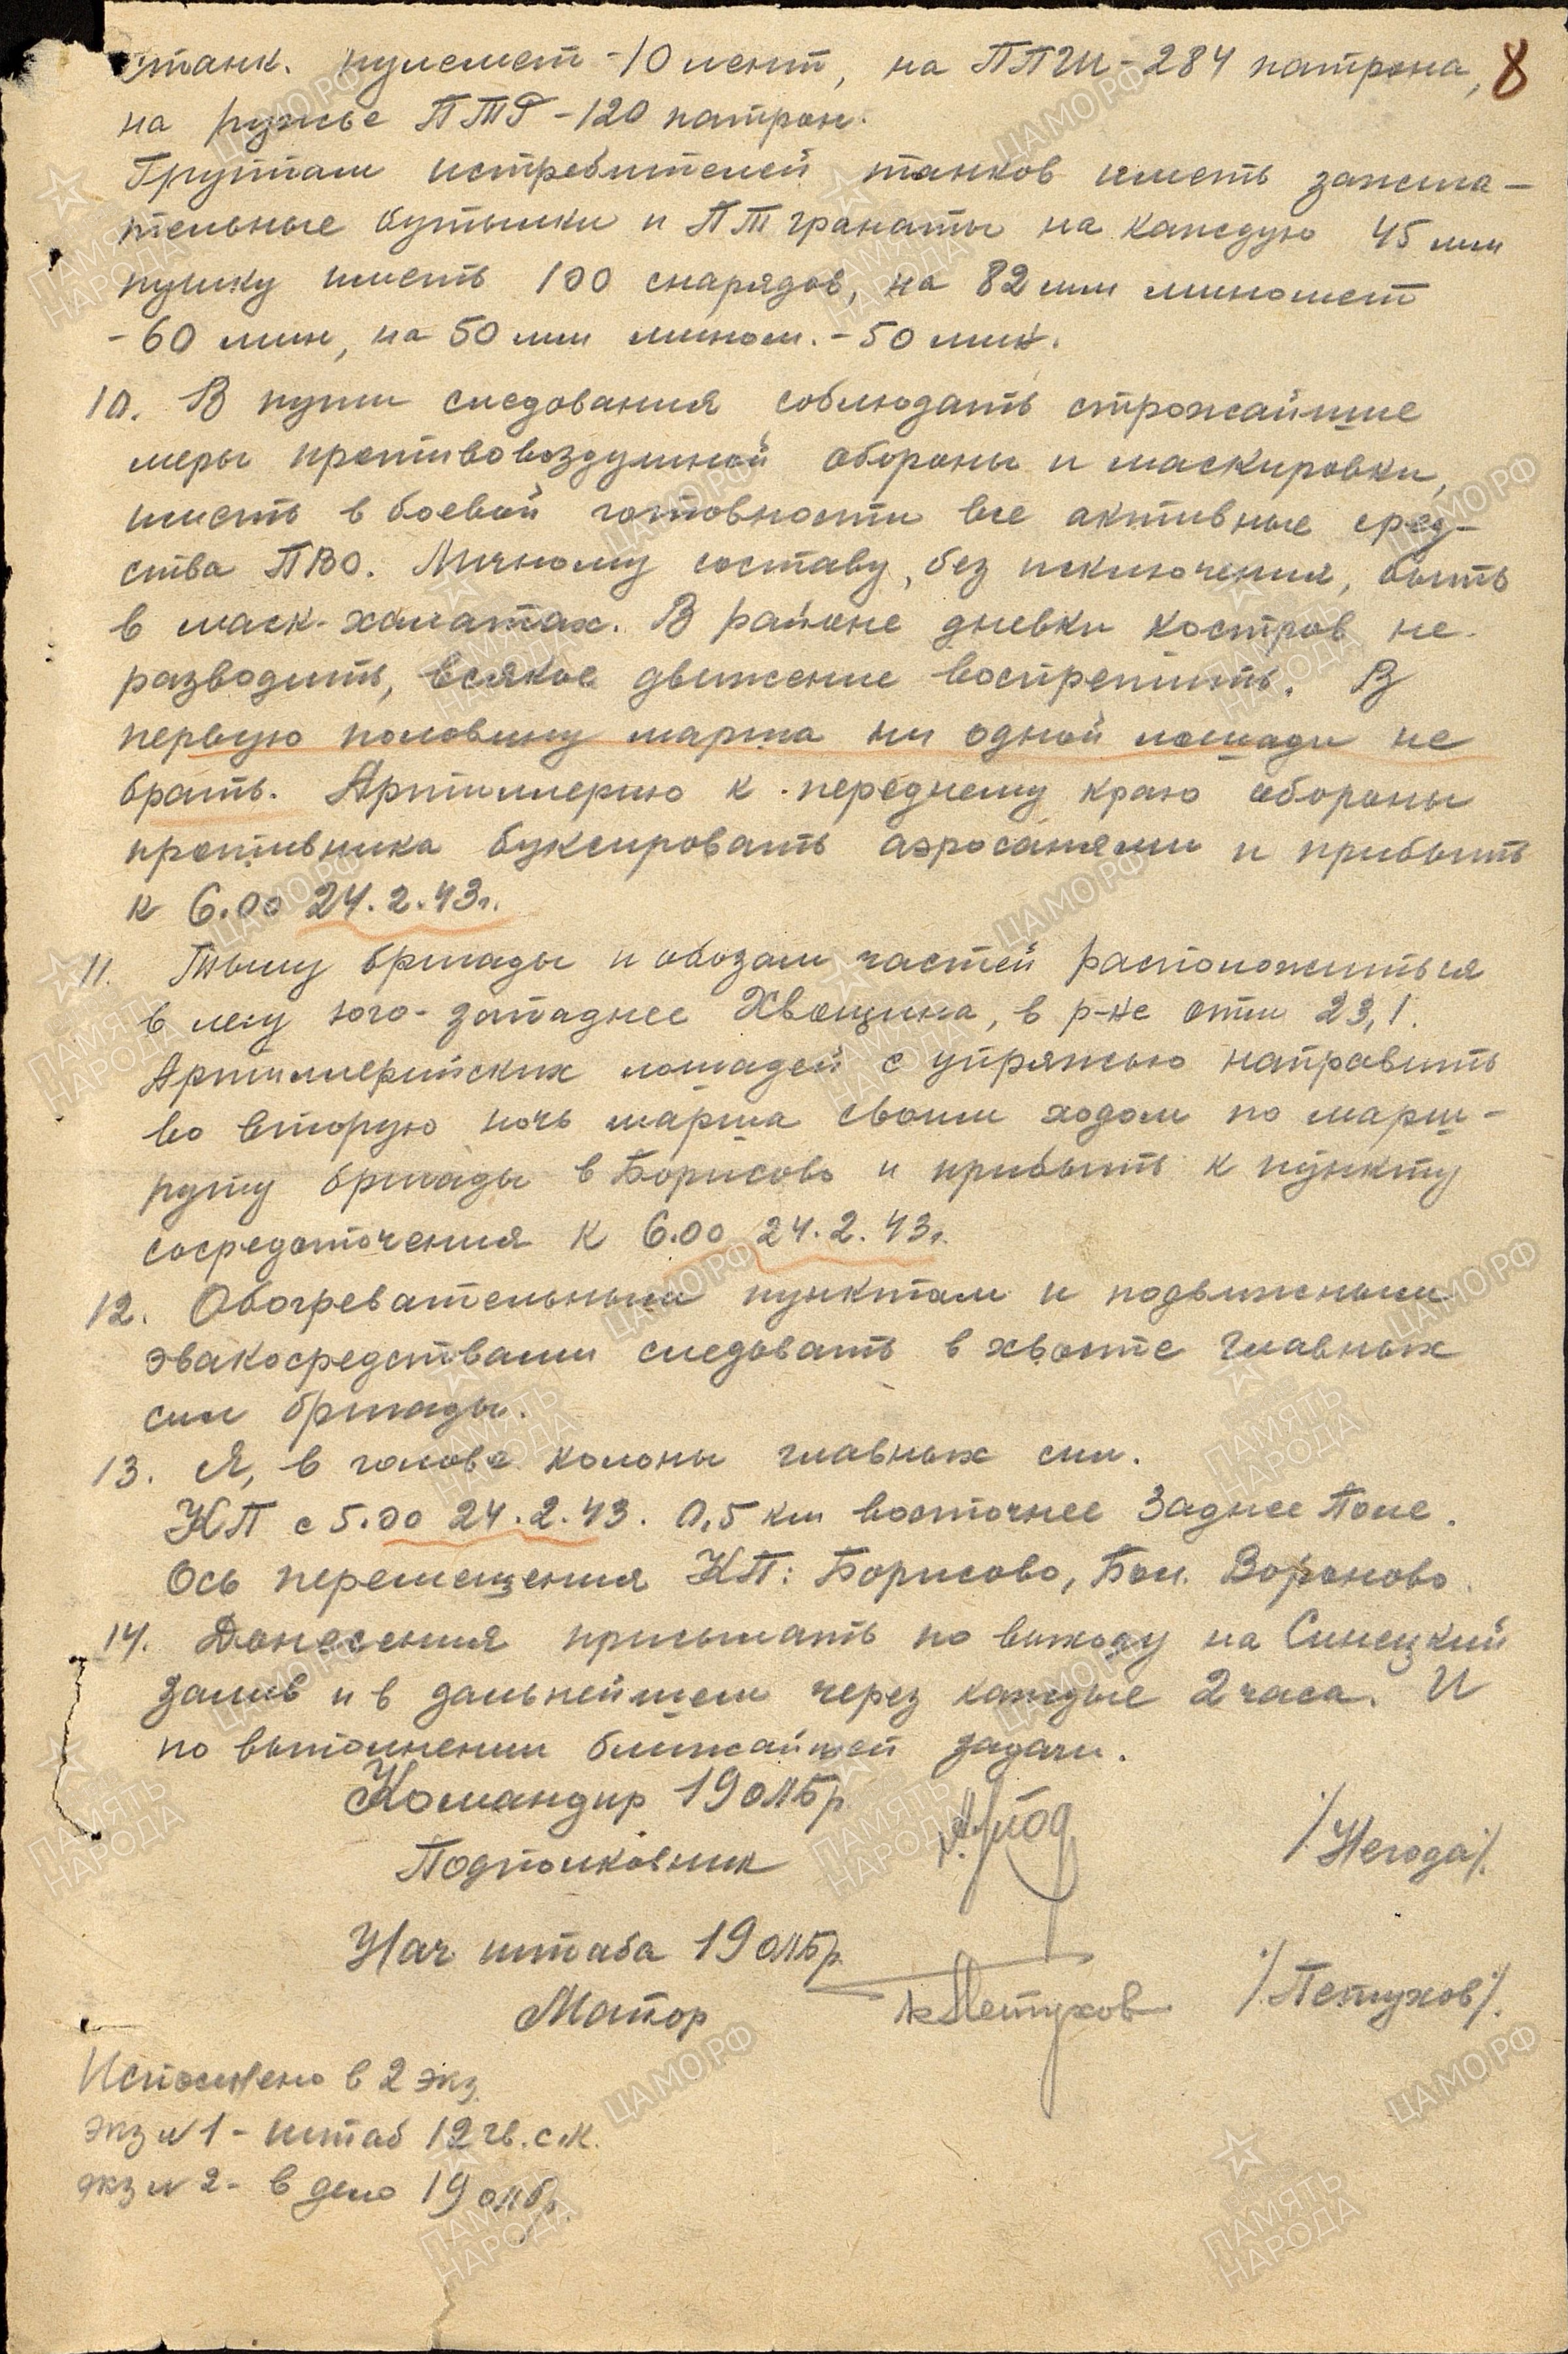 станк. пулемет - 10 лент, на ППШ - 284 патрона, 8
на ружье ПТР - 120 патрон.
Группам истребителей танков иметь зажига-
тельные бутылки и ПТ гранаты на каждую 45 мм
пушку иметь 100 снарядов, на 82 мм миномет
- 60 мин, на 50 мм мином. - 50 мин.
10. В пути следования соблюдать строжайшие
меры противовоздушной обороны и маскировки,
иметь в боевой готовности все активные сред-
ства ПВО. Личному составу, без исключения, быть
в маск-халатах. В районе дневки костров не
разводить, всякое движение воспретить. В
первую половину марша ни одной лошади не
брать. Артиллерию к переднему краю обороны
противника буксировать аэросанями и прибыть
к 6.00 24.2.43г.
11. Тылу бригады и обозам частей расположиться
в лесу юго-западнее Хвощина, в р-не отм 23,1.
Артиллерийских лошадей с упряжью направить
во вторую ночь марша своим ходом по марш-
руту бригады в Борисово и прибыть к пункту
сосредоточения к 6.00 24.2.43г.
12. Обогревательным пунктам и подвижными
эвакосредствами следовать в хвосте главных
сил бригады.
13. Я, в голове колоны главных сил.
КП с 5.00 24.2.43. 0,5 км восточнее Заднее Поле.
Ось перемещения КП: Борисово, Бол. Вороново.
14. Донесения присылать по выходу на Синецкий
залив и в дальнейшем через каждые 2 часа. И
по выполнении ближайшей задачи.
Командир 19 олбр
Подполковник /Негода/.
Нач штаба 19 олбр
Майор Петухов /Петухов/.
Исполнено в 2 экз.
экз N 1 - штаб 12 гв. с.к.
экз N 2 - в дело 19 олбр.
ЦАМО.РФ
ПАМЯТЬ
НАРОДА